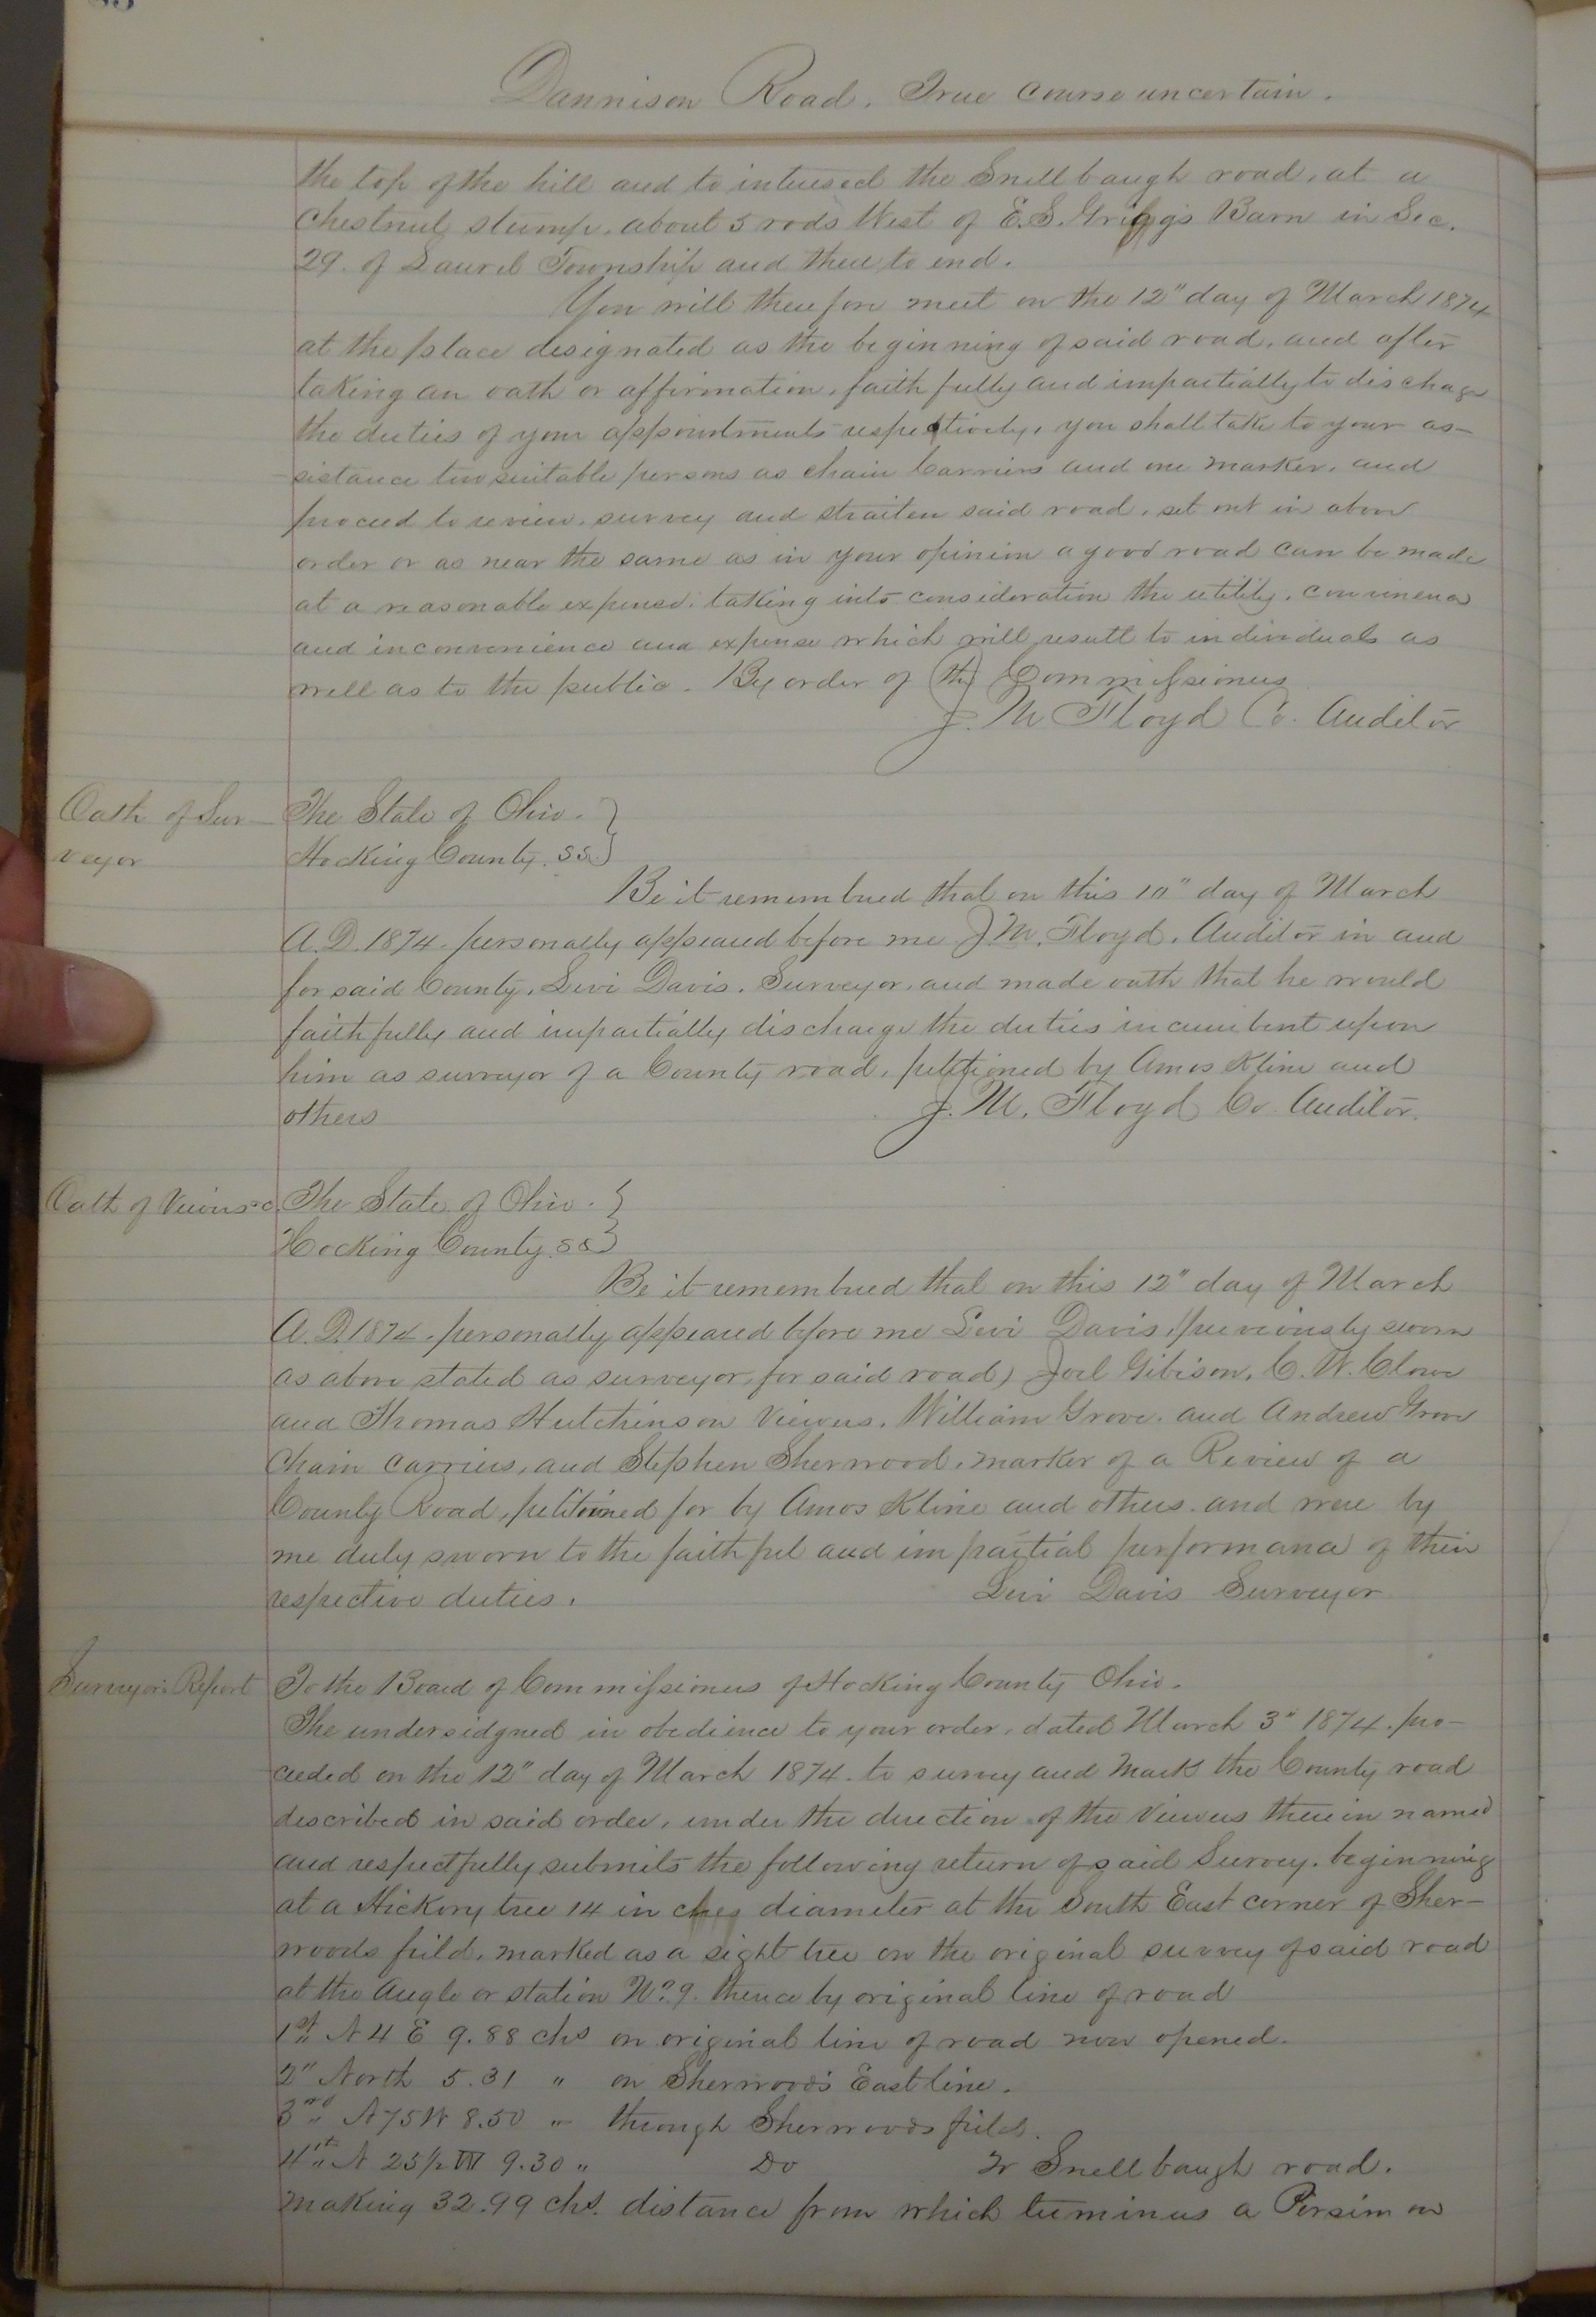 Dannison Road. True course uncertain.
the top of the hill and to intersect the Snellbaugh road, at a
Chestnut stump, about 5 rods West of E.S. Griggs Barn in Sec.
29. of Laurel Township and there to end.
You will therefore meet on the 12" day of March 1874
at the place designated as the beginning of said road, and after
taking an oath or affirmation, faithfully and impartially to discharge
the duties of your appointments respectively, you shall take to your as-
sistance two suitable persons as chain Carriers and one marker, and
proceed to review, survey and straiten said road, set out in above
order or as near the same as in your opinion a good road can be made
at a reasonable expense, taking into consideration the utility, convinence
and inconvenience and expense which will result to individuals as
well as to the public. By order of (the) Commissioners
J. M Floyd Co. Auditor
Oath of Sur-
veyor
The State of Ohio. }
Hocking County. SS. }
Be it remembred that on this 10" day of March
A.D. 1874. personally appeared before me J M. Floyd. Auditor in and
for said County, Levi Davis. Surveyor, and made oath that he would
faithfully and impartially discharge the duties incumbent upon
him as surveyor of a County road, petitioned by Amos Kline and
others J. M. Floyd Co Auditor.
Oath of Viewers &c.
The State of Ohio. }
Hocking County. SS }
Be it remembred that on this 12" day of March
A.D. 1874. personally appeared before me Levi Davis, (previously sworn
as above stated as surveyor, for said road) Joel Gibison, C. W. Clowe
and Thomas Hutchinson Viewers, William Grove. and Andrew Grove
Chain carriers, and Stephen Sherwood, marker of a Review of a
County Road, petitoined for by Amos Kline and others. and were by
me duly sworn to the faithful and impartial performance of their
respective duties. Levi Davis Surveyor
Surveyors Report
To the Board of Commissioners of Hocking County Ohio.
The undersidgned in obedience to your order, dated March 3" 1874. pro-
ceeded on the 12" day of March 1874. to survey and Mark the County road
described in said order, under the direction of the Viewers therein named
and respectfully submits the following return of said Survey. beginning
at a Hickory tree 14 inches diameter at the South East corner of Sher-
woods field, marked as a sight tree on the original survey of said road
at the Angle or station No. 9. thence by original line of road
1st " N 4 E 9.88 chs on original line of road now opened.
2" North 5.31 " on Sherwoods East line.
3rd " N 75 W 8.50 " through Sherwoods field.
4th " N 23½ W 9.30 " Do To Snellbaugh road.
making 32.99 chs. distance from which terminus a Persimon